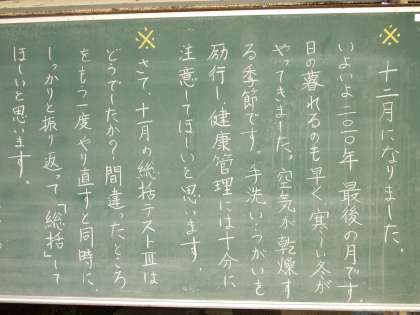 ※ 十二月になりました。
いよいよ二〇一〇年 最後の月です。
日の暮れるのも早く、寒〜い冬が
やってきました。空気が乾燥す
る季節です。手洗い・うがいを
励行し、健康管理には十分に
注意してほしいと思います。
※ さて、十一月の総括テストⅢは
どうでしたか？間違ったところ
をもう一度やり直すと同時に、
しっかりと振り返って「総括」して
ほしいと思います。